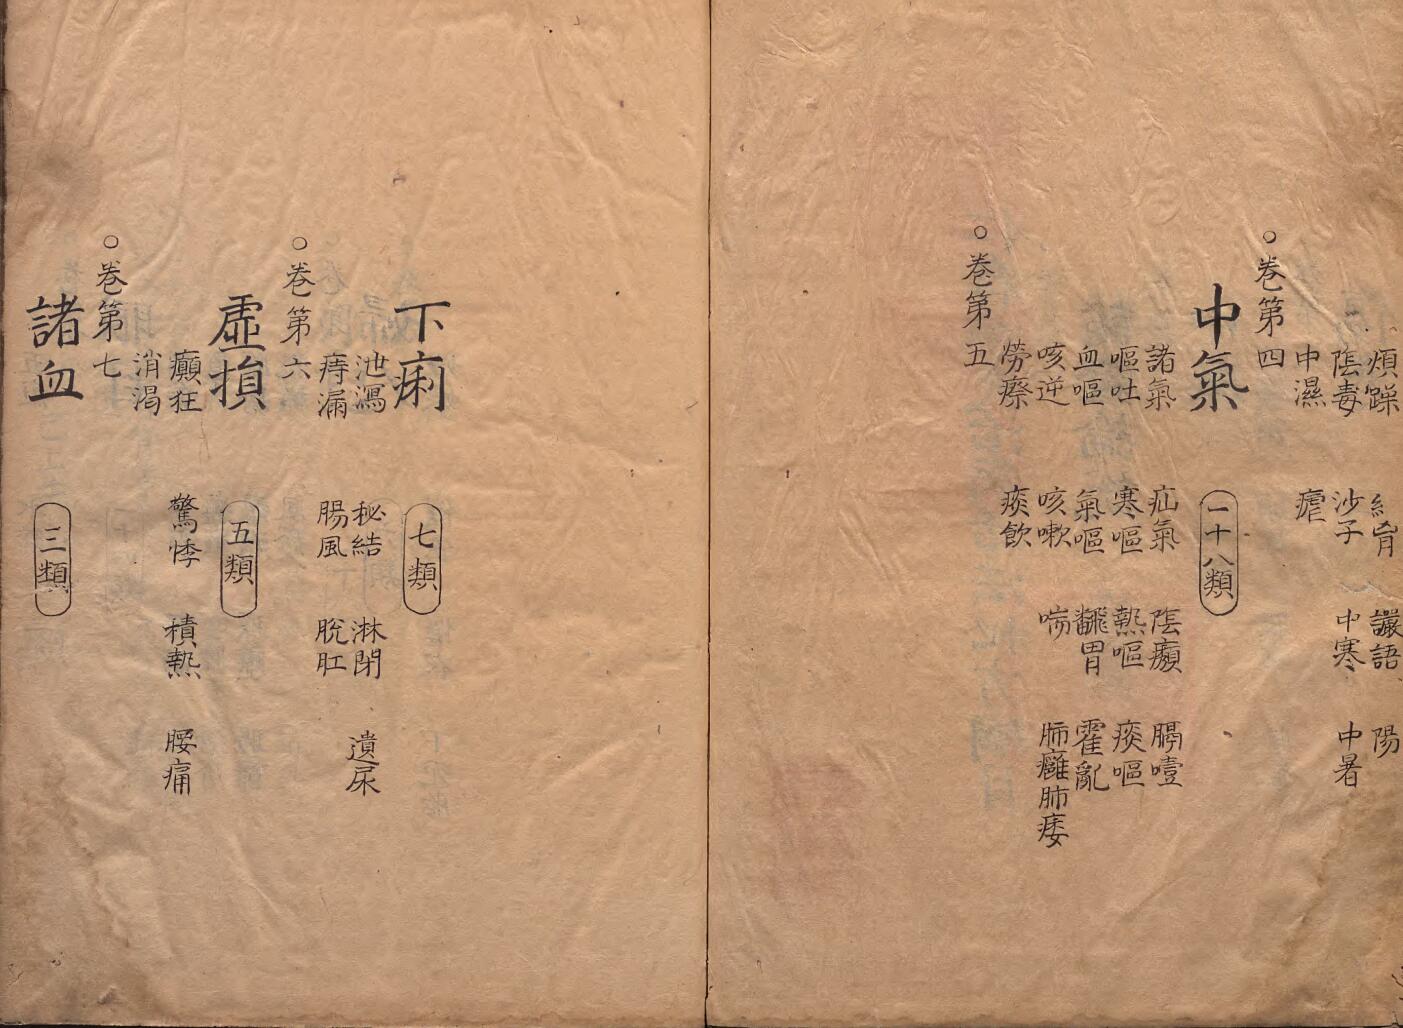 煩躁 結胷 讝語 陽
陰毒 沙子 中寒 中暑
中濕 瘧
○卷第四
中氣 一十八類
諸氣 疝氣 陰㿗 膈噎
嘔吐 寒嘔 熱嘔 痰嘔
血嘔 氣嘔 飜胃 霍亂
咳逆 咳嗽 喘 肺癰肺痿
勞瘵 痰飲
○卷第五
下痢 七類
泄瀉 秘結 淋閉 遺尿
痔漏 腸風 脫肛
○卷第六
虛損 五類
癲狂 驚悸 積熱 腰痛
消渴
○卷第七
諸血 三類